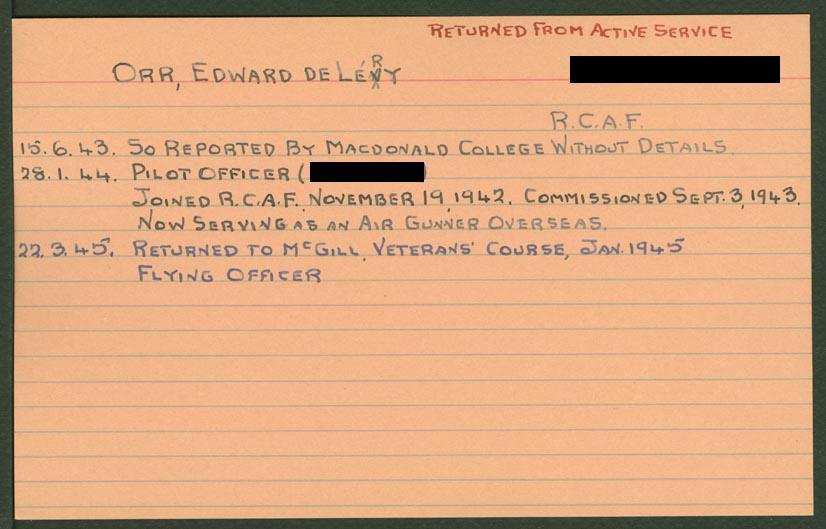 RETURNED FROM ACTIVE SERVICE
ORR, EDWARD DE LÉRY
R.C.A.F.
15.6.43. SO REPORTED BY MACDONALD COLLEGE WITHOUT DETAILS.
28.1.44. PILOT OFFICER (
JOINED R.C.A.F. NOVEMBER 19, 1942. COMMISSIONED SEPT. 3, 1943.
NOW SERVING AS AN AIR GUNNER OVERSEAS.
22.3.45. RETURNED TO MCGILL, VETERANS' COURSE, JAN. 1945
FLYING OFFICER